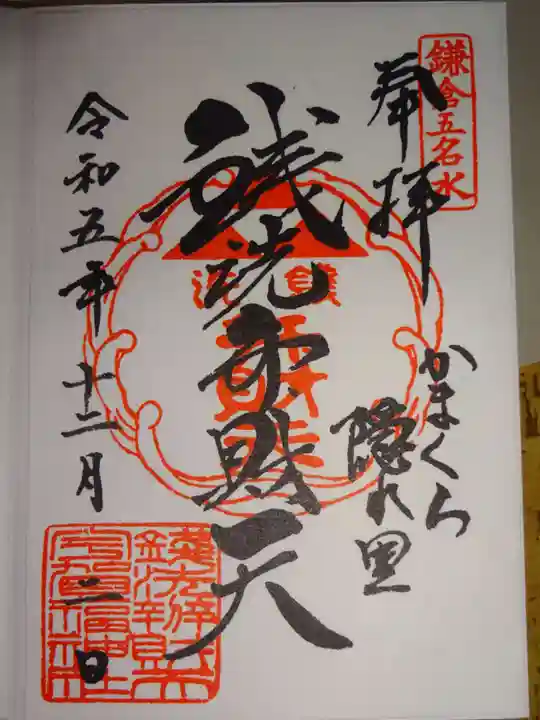 鎌倉五名水
奉拝
かまくら
隠れ里
銭洗弁財天
令和五年十二月二日